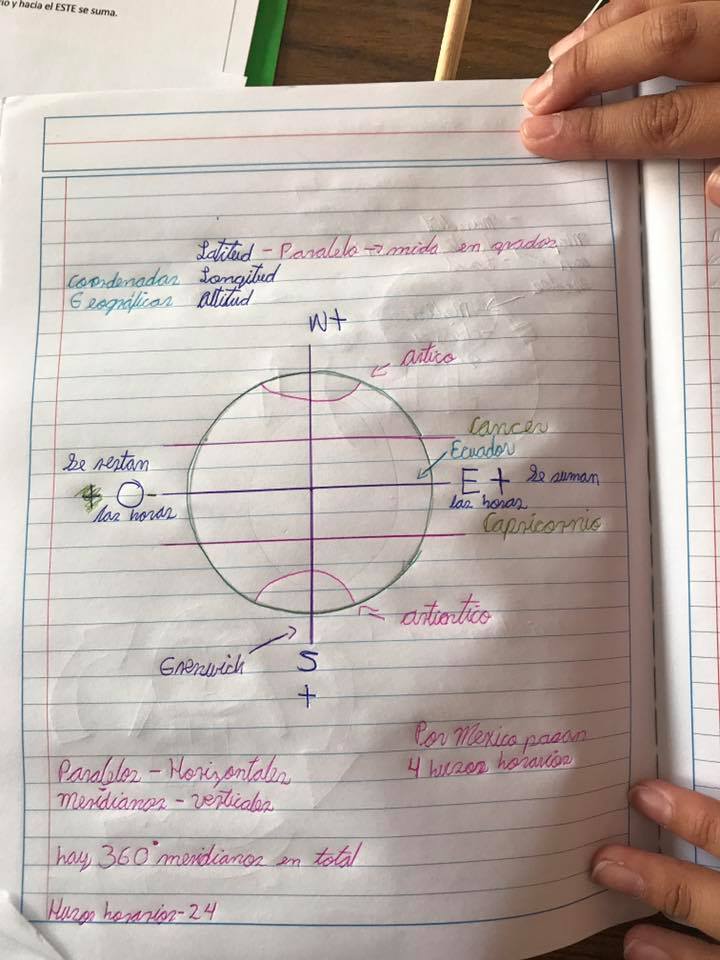 y hacia el ESTE se suma.
Latitud - Paralelo → mida en grados
Coordenadas Longitud
Geográficas Altitud
N+
artico
Cancer
Ecuador
Se restan
+ O -
las horas
E + Se suman
las horas
Capricornio
antiartico
Grenwich
S
+
Por Mexico pasan
4 husos horarios
Paralelos - Horizontales
meridianos - verticales
hay 360° meridianos en total
Husos horarios - 24